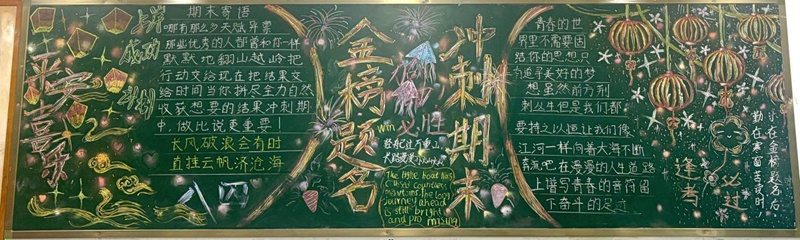 上岸
成功
计划
平安喜乐
期末寄语
哪有那么多天赋异禀
那些优秀的人都曾和你一样
默默地翻山越岭把
行动交给现在把结果交
给时间当你拼尽全力自然
收获想要的结果冲刺期
中,做比说更重要!
长风破浪会有时
直挂云帆济沧海
金榜题名
win必胜
轻舟已过万重山
The light boat has
journey ahead
is still bright
and promising
冲刺期末
青春的世
界里不需要因
结你的思想只
有追寻美好的梦
想虽然前方荆
刺丛生但是我们都
要持之以恒让我们像
江河一样向着大海不断
奔流吧在漫漫的人生道路
上谱写青春的音符留
下奋斗的足迹
逢考
必过
乐在金榜题名后
勤在寒窗苦读时